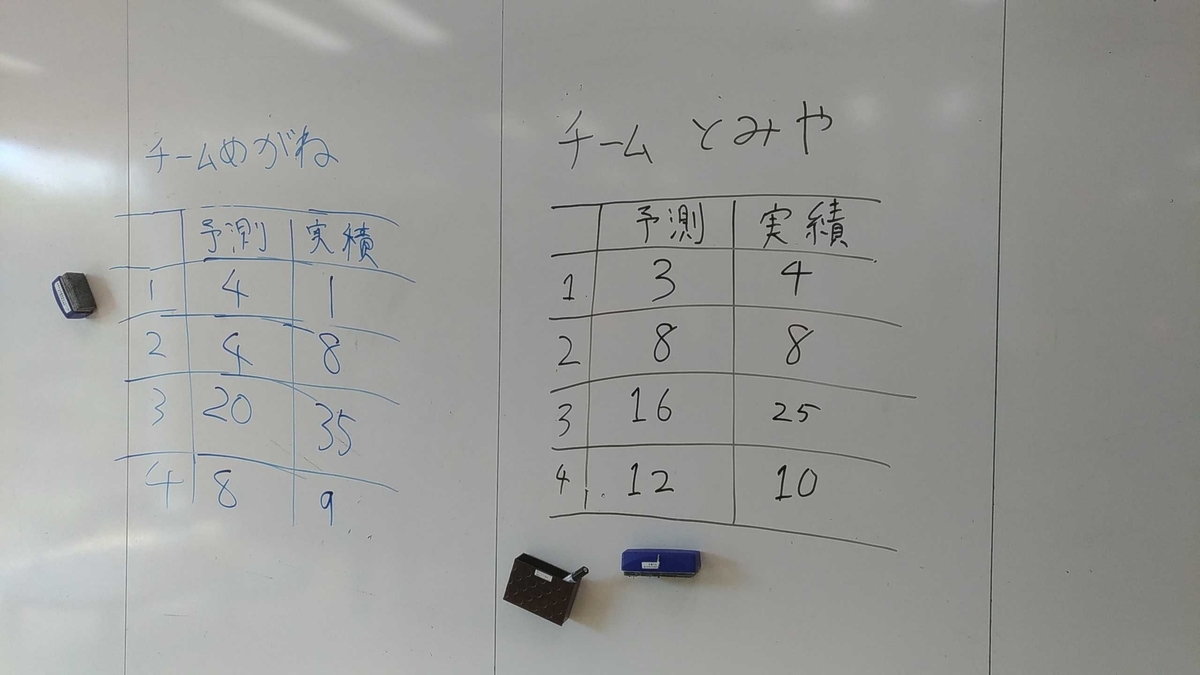 チームめがね
予測 実績
1 4 1
2 4 8
3 20 35
4 8 9
チーム とみや
予測 実績
1 3 4
2 8 8
3 16 25
4 12 10